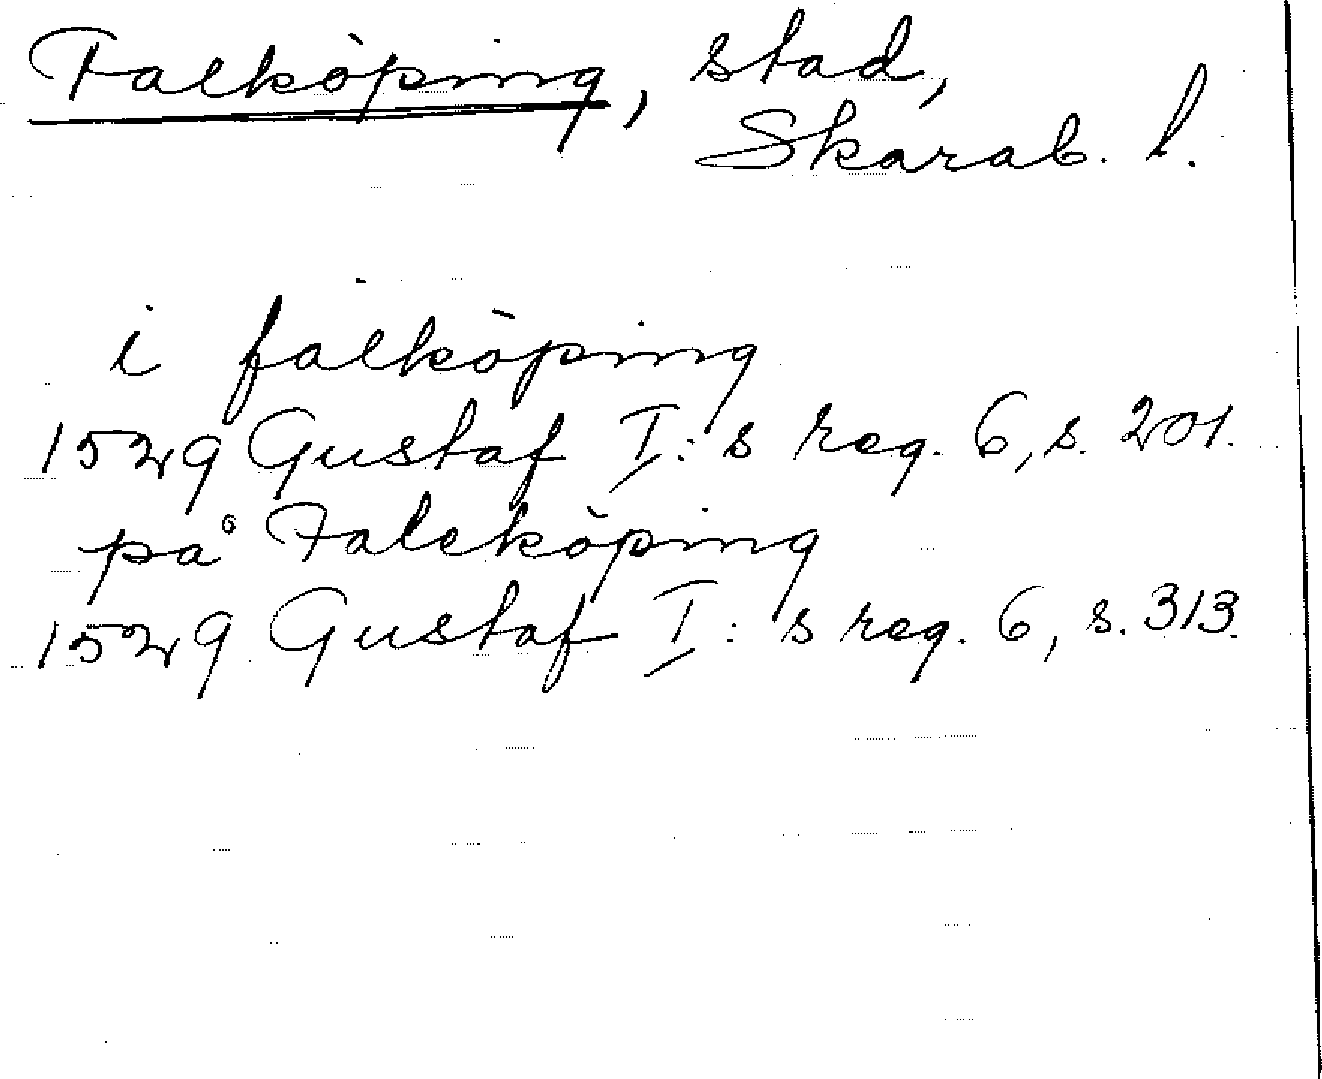 Falköping, stad,
Skarab. l.
i falköping
1529 Gustaf I:s reg. 6, s. 201.
på Falcköping
1529 Gustaf I:s reg. 6, s. 313.